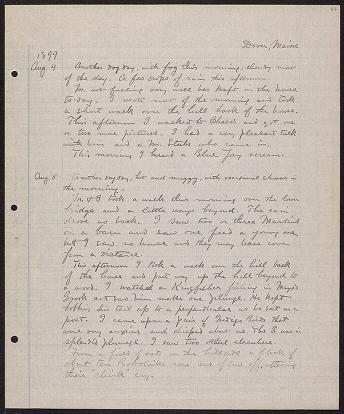 Dover, Maine
1899
Aug. 4 Another dog day, with fog this morning, cloudy most
of the day. A few drops of rain this afternoon.
M. not feeling very well has kept in the house
to-day. I wrote most of the morning and took
a short walk over the hill back of the house.
This afternoon I walked to and got one
or two more pictures. I had a very pleasant talk
with him and a Mr. who came in.
This morning I heard a Blue Jay scream.
Aug 5 Another dog day, hot and muggy, with occasional showers in
the morning.
M. & I took a walk this morning over the lower
bridge and a little way beyond. The rain
drove us back. I saw two or three Martins
on a barn and saw one feed a young one,
but I saw no house and they may have come
from a distance.
This afternoon I took a walk over the hill back
of the house and put my up the hill beyond to
a wood. I watched a Kingfisher fishing in
Brook and saw him make one plunge. He kept
bobbing his tail up to a perpendicular as he sat on a
post. I came upon a pair of Indigo Birds that
were very anxious and chirped about us. The was in
splendid plumage. I saw two others elsewhere.
From a field of oats on the hillside a flock of
about ten Bobolinks rose and flew off, uttering
their "chink" cry.